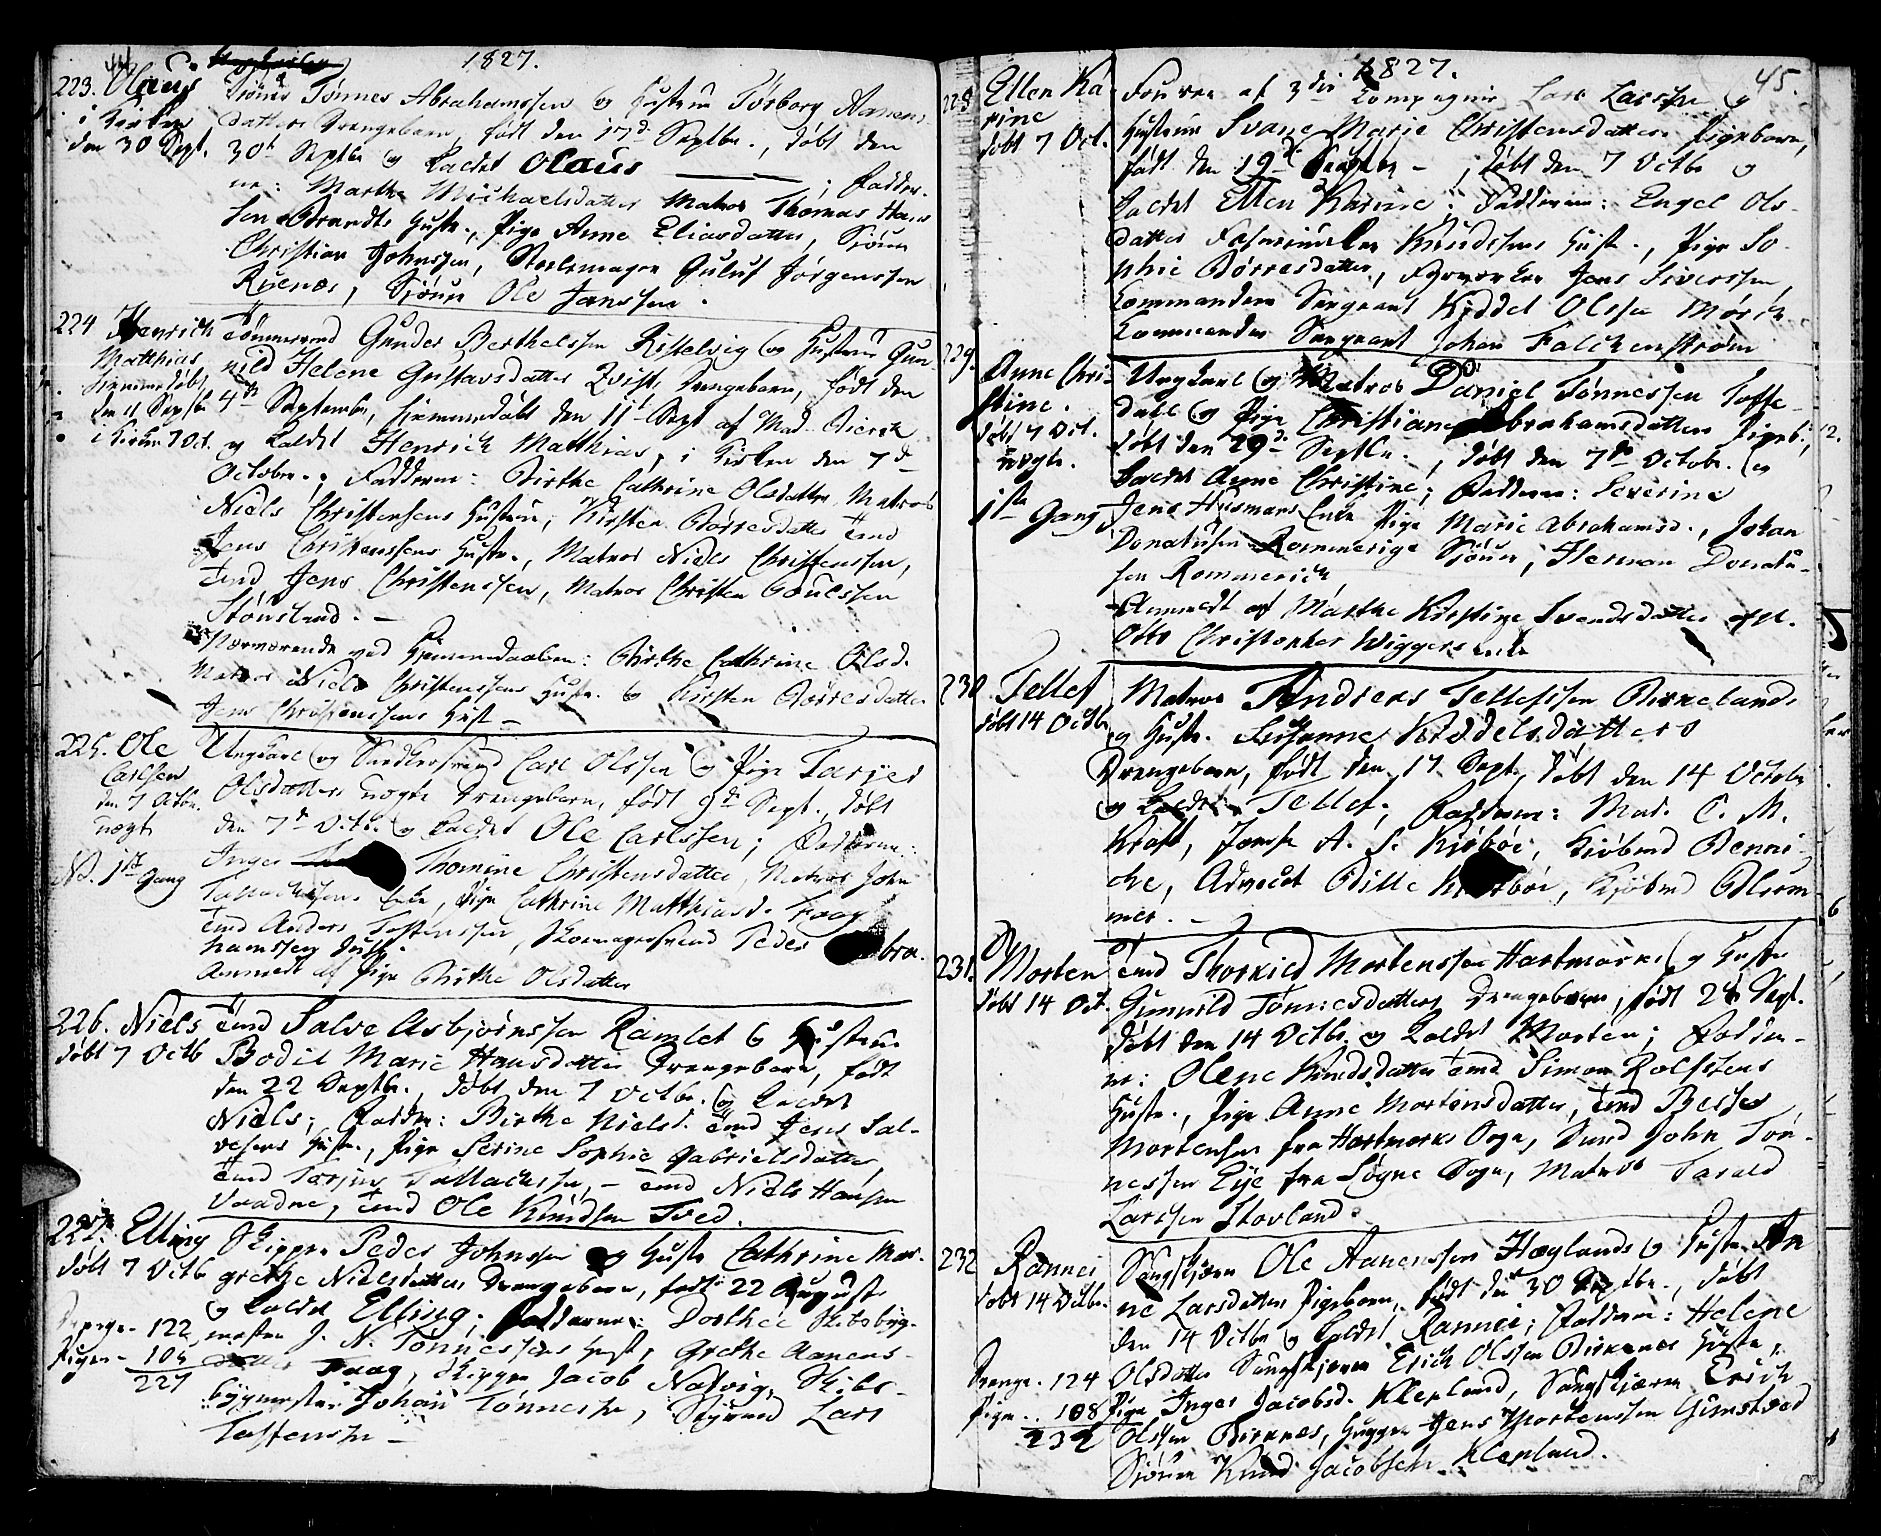 44
1827.
223. Olaus
i Kirken
den 30 Sept.
Tönnes Abrahamssen og Hustru Torborg Aanens
datters Drengebarn, født den 17d Septbr., døbt den
30t Septbr og kaldet Olaus ; Fadder-
ne: Marthe Michaelsdatter Matros Thomas Hans
sen Brandts Hustr., Pige Anne Eliasdatter, Sjöum
Christian Johnssen, Guluf Jørgenssen
Rosenæs, Sjöum Ole Jenssen.
224 Henrich
Matthias
hjemmedøbt
den 11 Septbr
i Kirken 7 Oct.
Tömmermd Gunder Berthelsen Risselvig og Hustrue Gun
nild Helene Gustavsdatter Qvists Drengebarn, født den
4de Septembr, hjemmedøbt den 11t Sept af Mad. Bierck
og kaldet Henrich Matthias, i Kirken den 7d
October; Fadderne: Birthe Cathrine Olsdatter Matros
Niels Christensens Hustrue, Kirsten Börresdatter Tmd
Jens Christenssens Hustr., Matros Niels Christenssen,
Tmd Jens Christenssen, Matros Christen Goulssen
Stönsland. -
Nærværende ved Hjemmedaaben: Birthe Cathrine Olsd.
Matros Niels Christenssens Hustr. og Kirsten Börresdatter
Jens Christenssens Hust -
225. Ole
Carlsen
den 7 Octbr.
uægte
No. 1ste Gang
Ungkarl og Snedkersvend Carl Olssen og Pige Tarjer
Olsdatters uægte Drengebarn, født 9de Sept., døbt
den 7de Octb. og kaldet Ole Carlssen; Fadderne:
Inger Thomine Christensdatter, Matros John
Tallachssens Enke, Pige Cathrine Matthiasd. Faag
Tmd Anders Tostenssen, Skomagersvend Peder Abra-
hamssen
Anmeldt af Pige Birthe Olsdatter
226. Niels
døbt 7 Octb
Tmd Salve Asbjørnssen Ramlet og Hustrue
Bodil Marie Hansdatters Drengebarn, født
den 22 Septbr., døbt den 7 Octbr. og kaldet
Niels; Faddr: Birthe Nielsd. Tmd Jens Sal-
vesens Hustr., Pige Serine Sophie Gabrielsdatter,
Tmd Tarjus Tallachssen, - Tmd Niels Hansen
Vraadne, Tmd Ole Knudsen Tved.
227. Elling
døbt 7 Octb
Drenge- 122
Piger - 105
227
Skipper Peder Johnssen og Hustr Cathrine Mar-
grethe Nielsdatters Drengebarn, født 22 August
og kaldet Elling; Fadderne: Dorthee Skibsbyg-
mester J. N. Tønnessens Hust, Grethe Aanens-
datter Faag, Skipper Jacob Nodvig, Skibs-
bygmester Johan Tönnessen, Styrmd Lars
Tostensen -
1827.
45.
228 Ellen Ka
rine
døbt 7 Oct.
Fourer af 3die Compagnie Lars Larssen og
Hustrue Svane Marie Christensdatters Pigebarn,
født den 19d Septbr - , døbt den 7 Octbr og
kaldet Ellen Karine; Fadderne: Engel Ols-
datter Knudsens Hust., Pige So-
phie Börresdatter, Jens Siverssen,
Commandeer Sergeant Kiddel Olsen Mörch
Commandeer Sergeant Johan Falckenström
229. Anne Chri-
stine.
døbt 7 Oct.
uægte.
1ste Gang
Ungkarl og Matros Daniel Tønnessen Tofte
dall og Pige Christiane Abrahamsdatters Pigeb.,
født den 29d Septbr., døbt den 7de Octobr. og
kaldet Anne Christine; Fadderne: Severine
Jens Huismans Enke Pige Marie Abrahamsd., Johan
Donatusen Rommerige Sjöum, Herman Donatu-
sen Rommerich,
Anmeldt af Marthe Kirstine Svendsdatter
Otto Christopher Wiggers Enke
230 Tellef
døbt 14 Octbr
Matros Andreas Tellefssen Birkelands
og Hustr. Susanne Kiddelsdatters
Drengebarn, født den 17 Sept, døbt den 14 Octobr
og kaldet Tellef; Fadderne: Mad. C. M.
Kraft, Jomfr A. S. Kirböe, Kiöbmd Benni-
che, Advocat Bille Kirböe, Kjöbmd
mer. -
231. Morten
døbt 14 Oct.
Tmd Thorkild Mortenssen Hartmarks og Hustr
Gunnild Tønnesdatters Drengebarn, født 24 Sept.
døbt den 14 Octbr. og kaldet Morten; Fadder-
ne: Olene Knudsdatter Tmd Simon Rolfssens
Hustr., Pige Anne Mortensdatter, Tmd Besse
Mortensen fra Hartmarks Sogn, Svend John Tön-
nessen Eye fra Søgne Sogn, Matros Tarald
Larssen Stovland.
232 Rannei
døbt 14 Octbr.
Drenge. 124
Piger .. 108
232
Ole Aanenssen Høglands og Hustr. An
ne Larsdatters Pigebarn, født den 30 Septbr., døbt
den 14 Octbr og kaldet Rannei; Fadderne: Helene
Olsdatter Erich Olssen Birkenes Hustr.,
Pige Inger Jacobsd. Klepland, Erich
Olssen Birknes, Jens Mortenssen Gimsteod
Sjöum Knud Jacobsen Klepland.